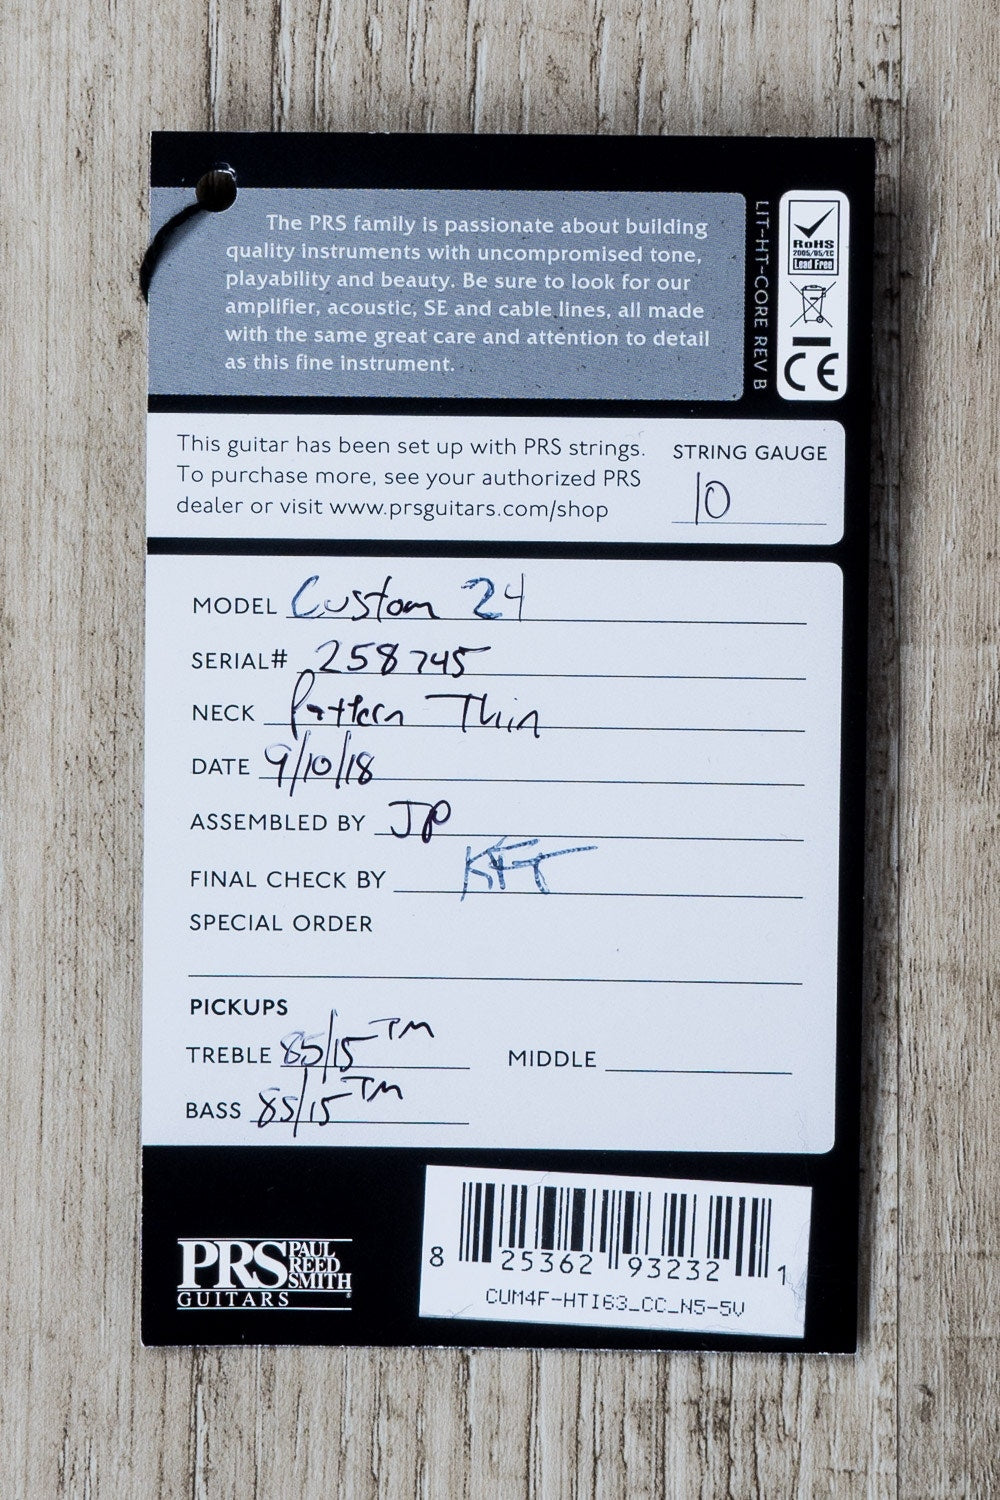 The PRS family is passionate about building
quality instruments with uncompromised tone,
playability and beauty. Be sure to look for our
amplifier, acoustic, SE and cable lines, all made
with the same great care and attention to detail
as this fine instrument.
LIT-HT-CORE REV B
RoHS
2005/95/EC
Lead Free
CE
This guitar has been set up with PRS strings.
To purchase more, see your authorized PRS
dealer or visit www.prsguitars.com/shop
STRING GAUGE
10
MODEL Custom 24
SERIAL# 258745
NECK Pattern Thin
DATE 9/10/18
ASSEMBLED BY JP
FINAL CHECK BY KFT
SPECIAL ORDER
PICKUPS
TREBLE 85/15™ MIDDLE
BASS 85/15™
PRS PAUL REED SMITH
GUITARS
8 25362 93232 1
CUM4F-HTI63_CC_N5-5V